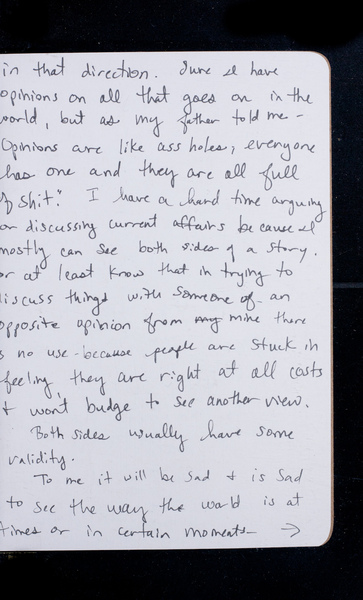 in that direction. Sure I have
opinions on all that goes on in the
world, but as my father told me -
Opinions are like ass holes, everyone
has one and they are all full
of shit." I have a hard time arguing
or discussing current affairs because I
mostly can see both sides of a story.
or at least know that in trying to
discuss things with someone of an
opposite opinion from mine there
is no use - because people are stuck in
feeling they are right at all costs
& won't budge to see another view.
Both sides usually have some
validity.
To me it will be sad & is sad
to see the way the world is at
times or in certain moments →